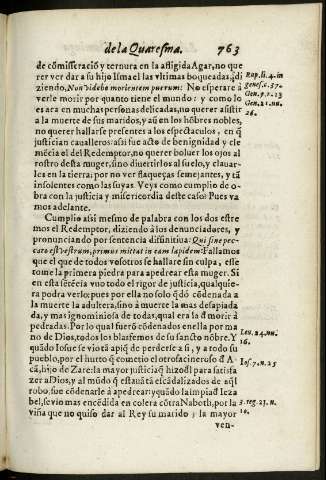 de la Quaresma. 763
de cõmisseració y ternura en la afligida Agar, no que
rer ver dar a su hijo Ismael las vltimas boqueadas, q̃di
ziendo. Non videbo morientem puerum: No esperare à
verle morir por quanto tiene el mundo: y como lo
es ara en muchas personas delicadas, no querer assistir
a la muerte de sus maridos, y aũ en los hõbres nobles,
no querer hallarse presentes a los espectaculos, en q̃
justician caualleros: assi fue acto de benignidad y cle
mẽcia el del Redemptor, no querer boluer los ojos al
rostro desta muger, sino diuertirlos al suelo, y clauar-
les en la tierra; por no ver flaqueças semejantes, y tã
insolentes como las suyas. Veys como cumplio de o-
bra con la justicia y misericordia deste caso? Pues va
mos adelante.
Cumplio assi mesmo de palabra con los dos estre
mos el Redemptor, diziendo à los denunciadores, y
pronunciando por sentencia difinitiua: Qui sine pec-
cato est vestrum, primus mittat in eam lapidem: Fallamos
que el que de todos vosotros se hallare sin culpa, esse
tome la primera piedra para apedrear esta muger. Si
en esta setẽcia vuo todo el rigor de justicia, qualquie-
ra podra verlo; pues por ella no solo q̃dó cõdenada a
la muerte la adultera, sino à muerte la mas desapiada
da, y mas ignominiosa de todas, qual era la d̃ morir à
pedradas. Por lo qual fuerõ cõdenados en ella por ma
no de Dios, todos los blasfemos de su sancto nõbre. Y
quãdo Iosue se viò tã apiq̃ de perderse a si, y a todo su
pueblo, por el hurto q̃ cometio el otro sacinoroso d̃ A
cã, hijo de Zare: la mayor justicia q̃ hizo d̃l para satisfa
zer a Dios, y al mũdo q̃ estauà tã escãdalizados de aq̃l
robo, fue cõdenarle à apedrear: y quãdo la impia d̃ Ieza
bel, se vio mas encẽdida en colera cõtra Naboth, por la
viña que no quiso dar al Rey su marido, y la mayor
ven-
Rup. li. 4. in
genes. c. 37.
Gen. p. 1. 13
Gen. 21. nu.
26.
Leu. 24. nu.
16.
Ios. 7. n. 25
3. reg. 21. n.
10.